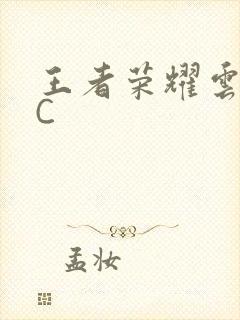 王者荣耀雲
C
孟妆